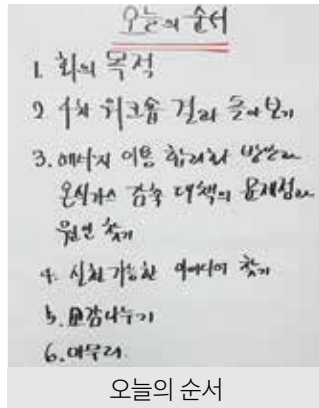 오늘의 순서
1. 회의 목적
2. 4차 워크숍 결과 돌아보기
3. 에너지 이용 합리화 방안과
온실가스 감축 대책의 문제점과
원인 찾기
4. 실천 가능한 아이디어 찾기
5. 소감나누기
6. 마무리.
오늘의 순서